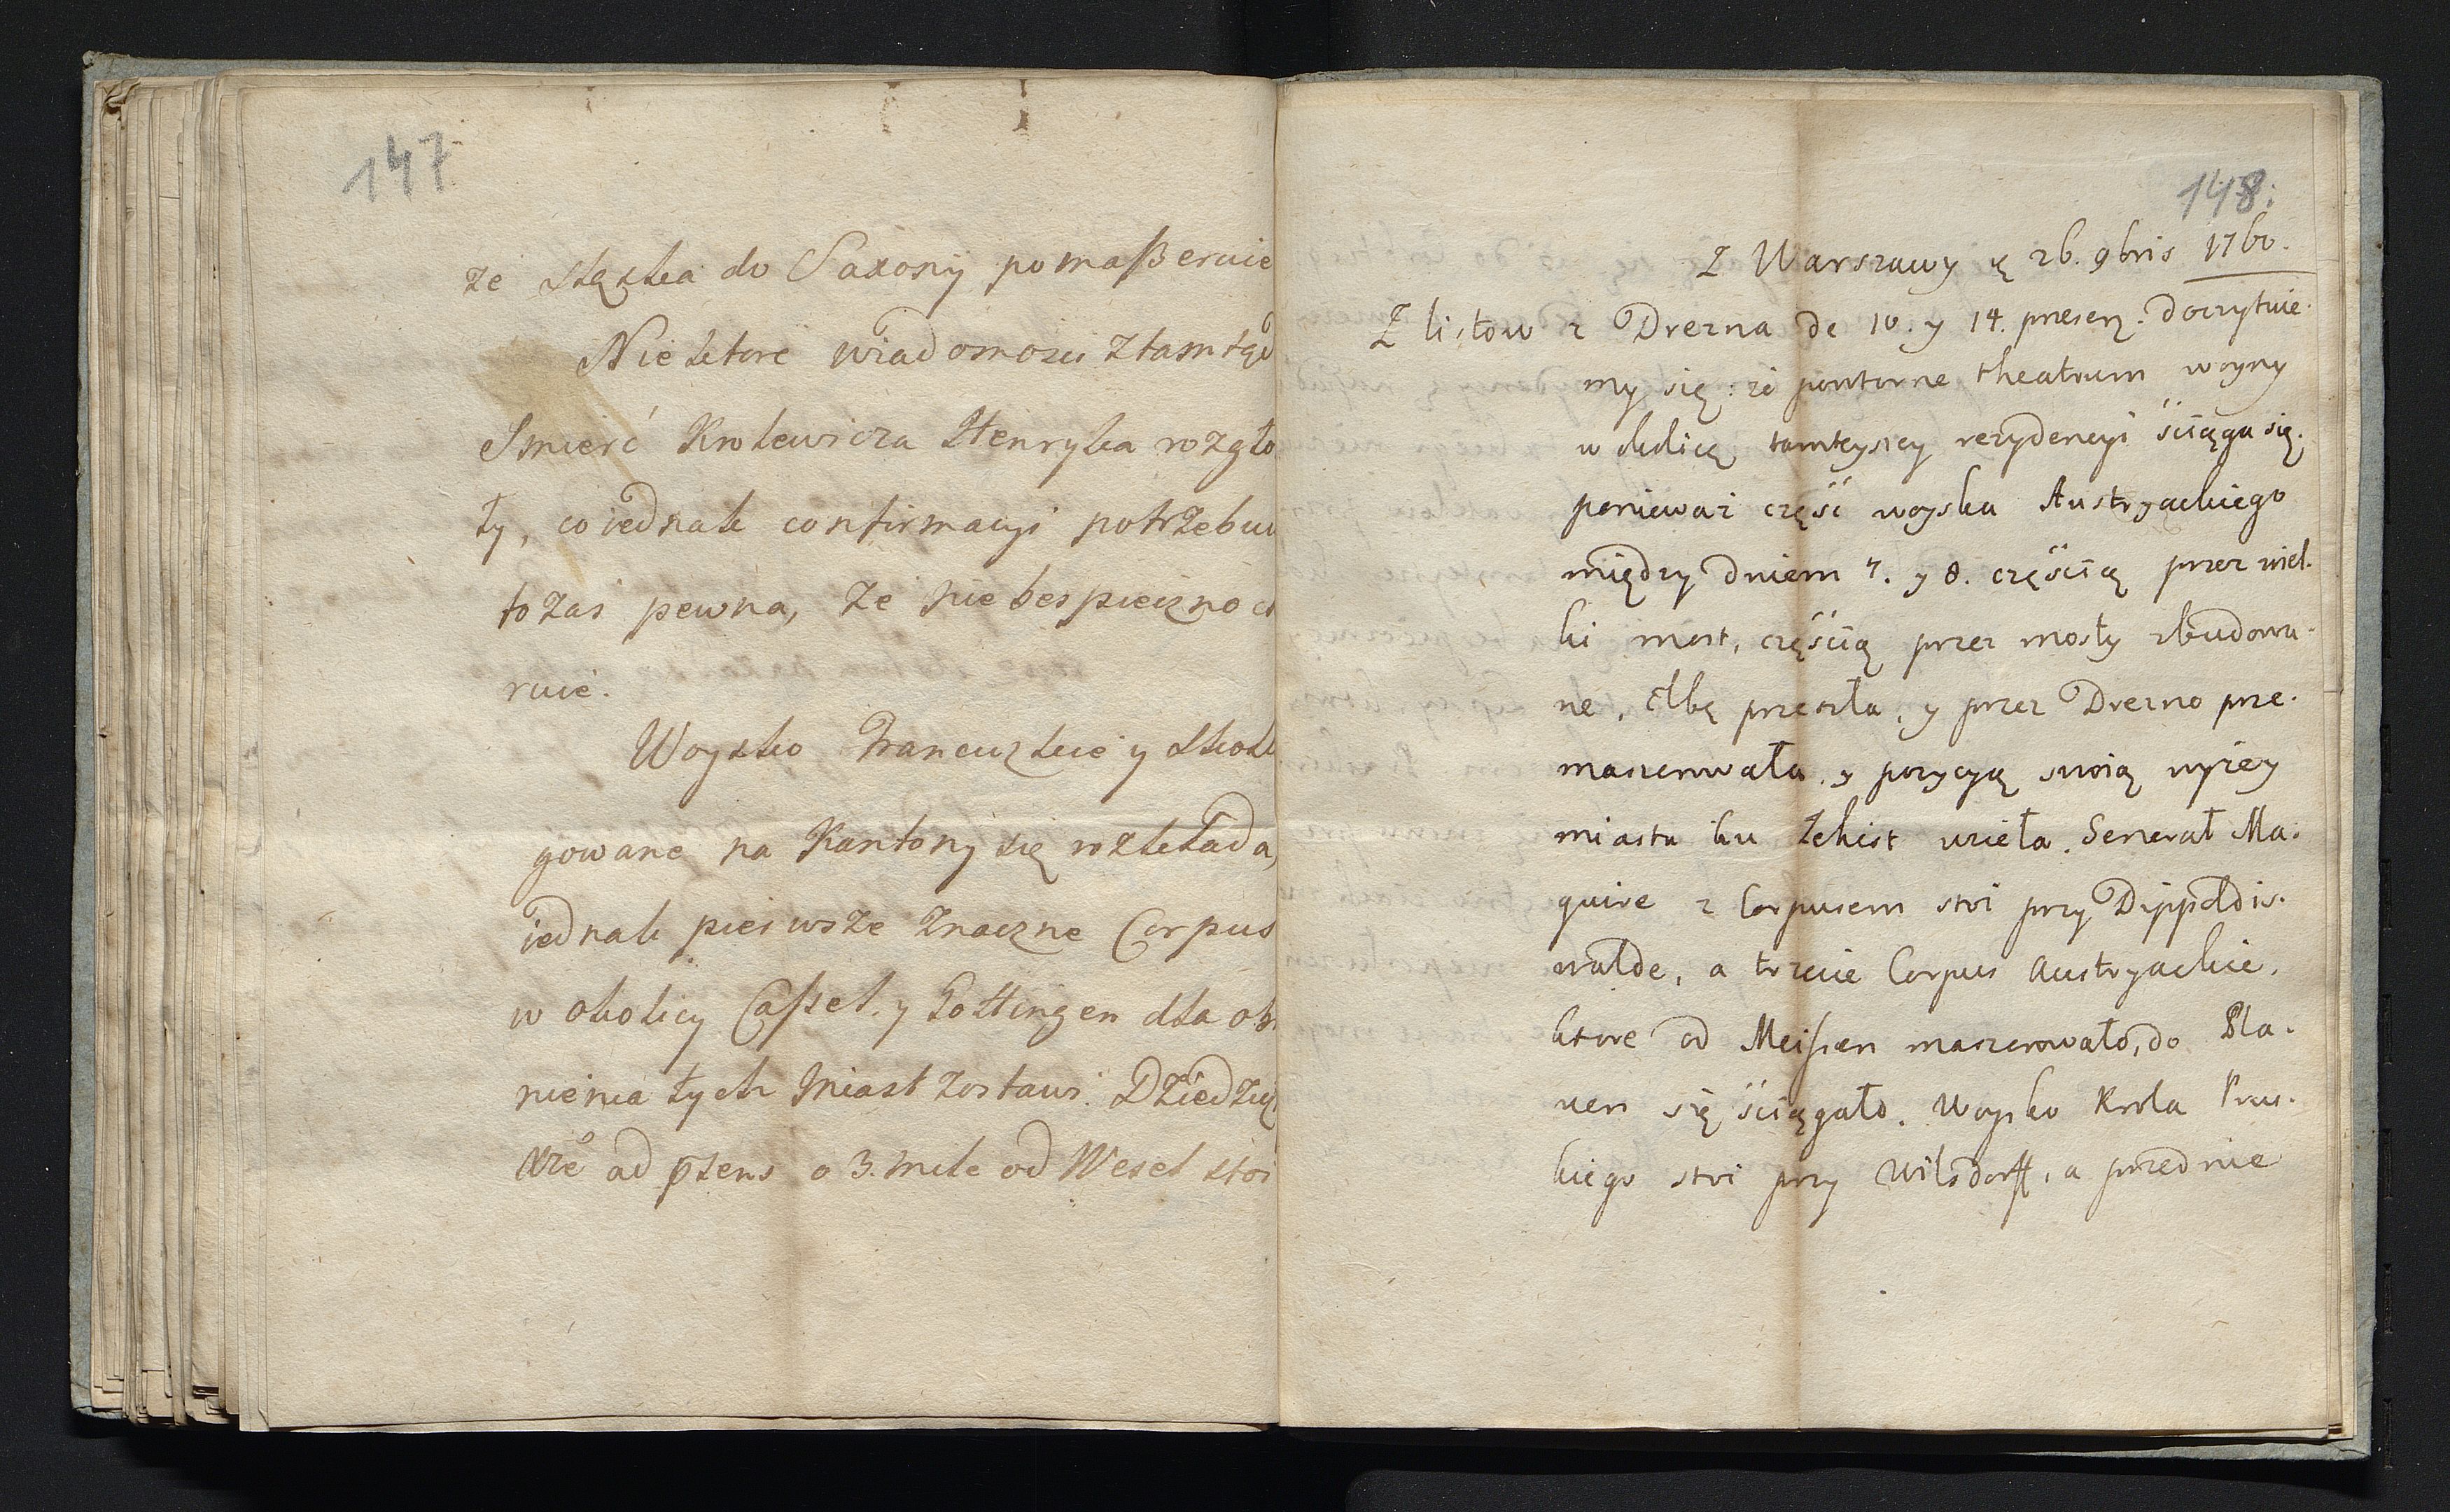 147
ze Sląska do Saxony pomaßeruie
Niektore wiadomosci ztamtąd
Smierć Krolewicza Henryka rozgło
ły, co iednak confirmacyi potrzebu
to zas pewna, ze niebespieczno ch
ruie.
Woysko Francuzkie y Skol
gowane na Kantony się rozkłada,
iednak pierwsze znaczne Corpus
w okolicy Cassel y Gottingen dla ob
nienia tych Miast zostawi. Dziedzic
Xże ad pſens o 3. mile od Wesel stoi
148.
Z Warszawy 26. 9bris 1760.
Z listow z Drezna de 10. y 14. presen. doczytuie-
my się: że powtorne theatrum woyny
w okolicę tamteyszey rezydencyi ściąga się.
ponieważ część woyska Austryackiego
między dniem 7. y 8. częścią przez wiel-
ki most, częścią przez mosty zbudowa-
ne, Elbę przeszła, y przez Drezno prze-
maszerowała, y pozycyą swoią wyżey
miasta ku Zehist wzieła. Generał Ma-
guire z Corpusem stoi przy Dippoldis-
walde, a trzecie Corpus Austryackie,
ktore od Meissen maszerowało, do Pla-
uen się ściągało. Woysko Krola Prus-
kiego stoi przy Wilsdorff, a przednie